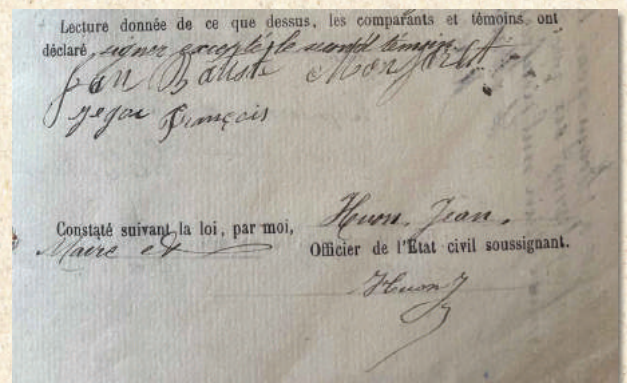 Lecture donnée de ce que dessus, les comparants et témoins ont
déclaré signer excepté le second témoin
Jean Batiste Monfort
Jegou François
Constaté suivant la loi, par moi, Huon Jean,
Maire et Officier de l'État civil soussignant.
Huon J